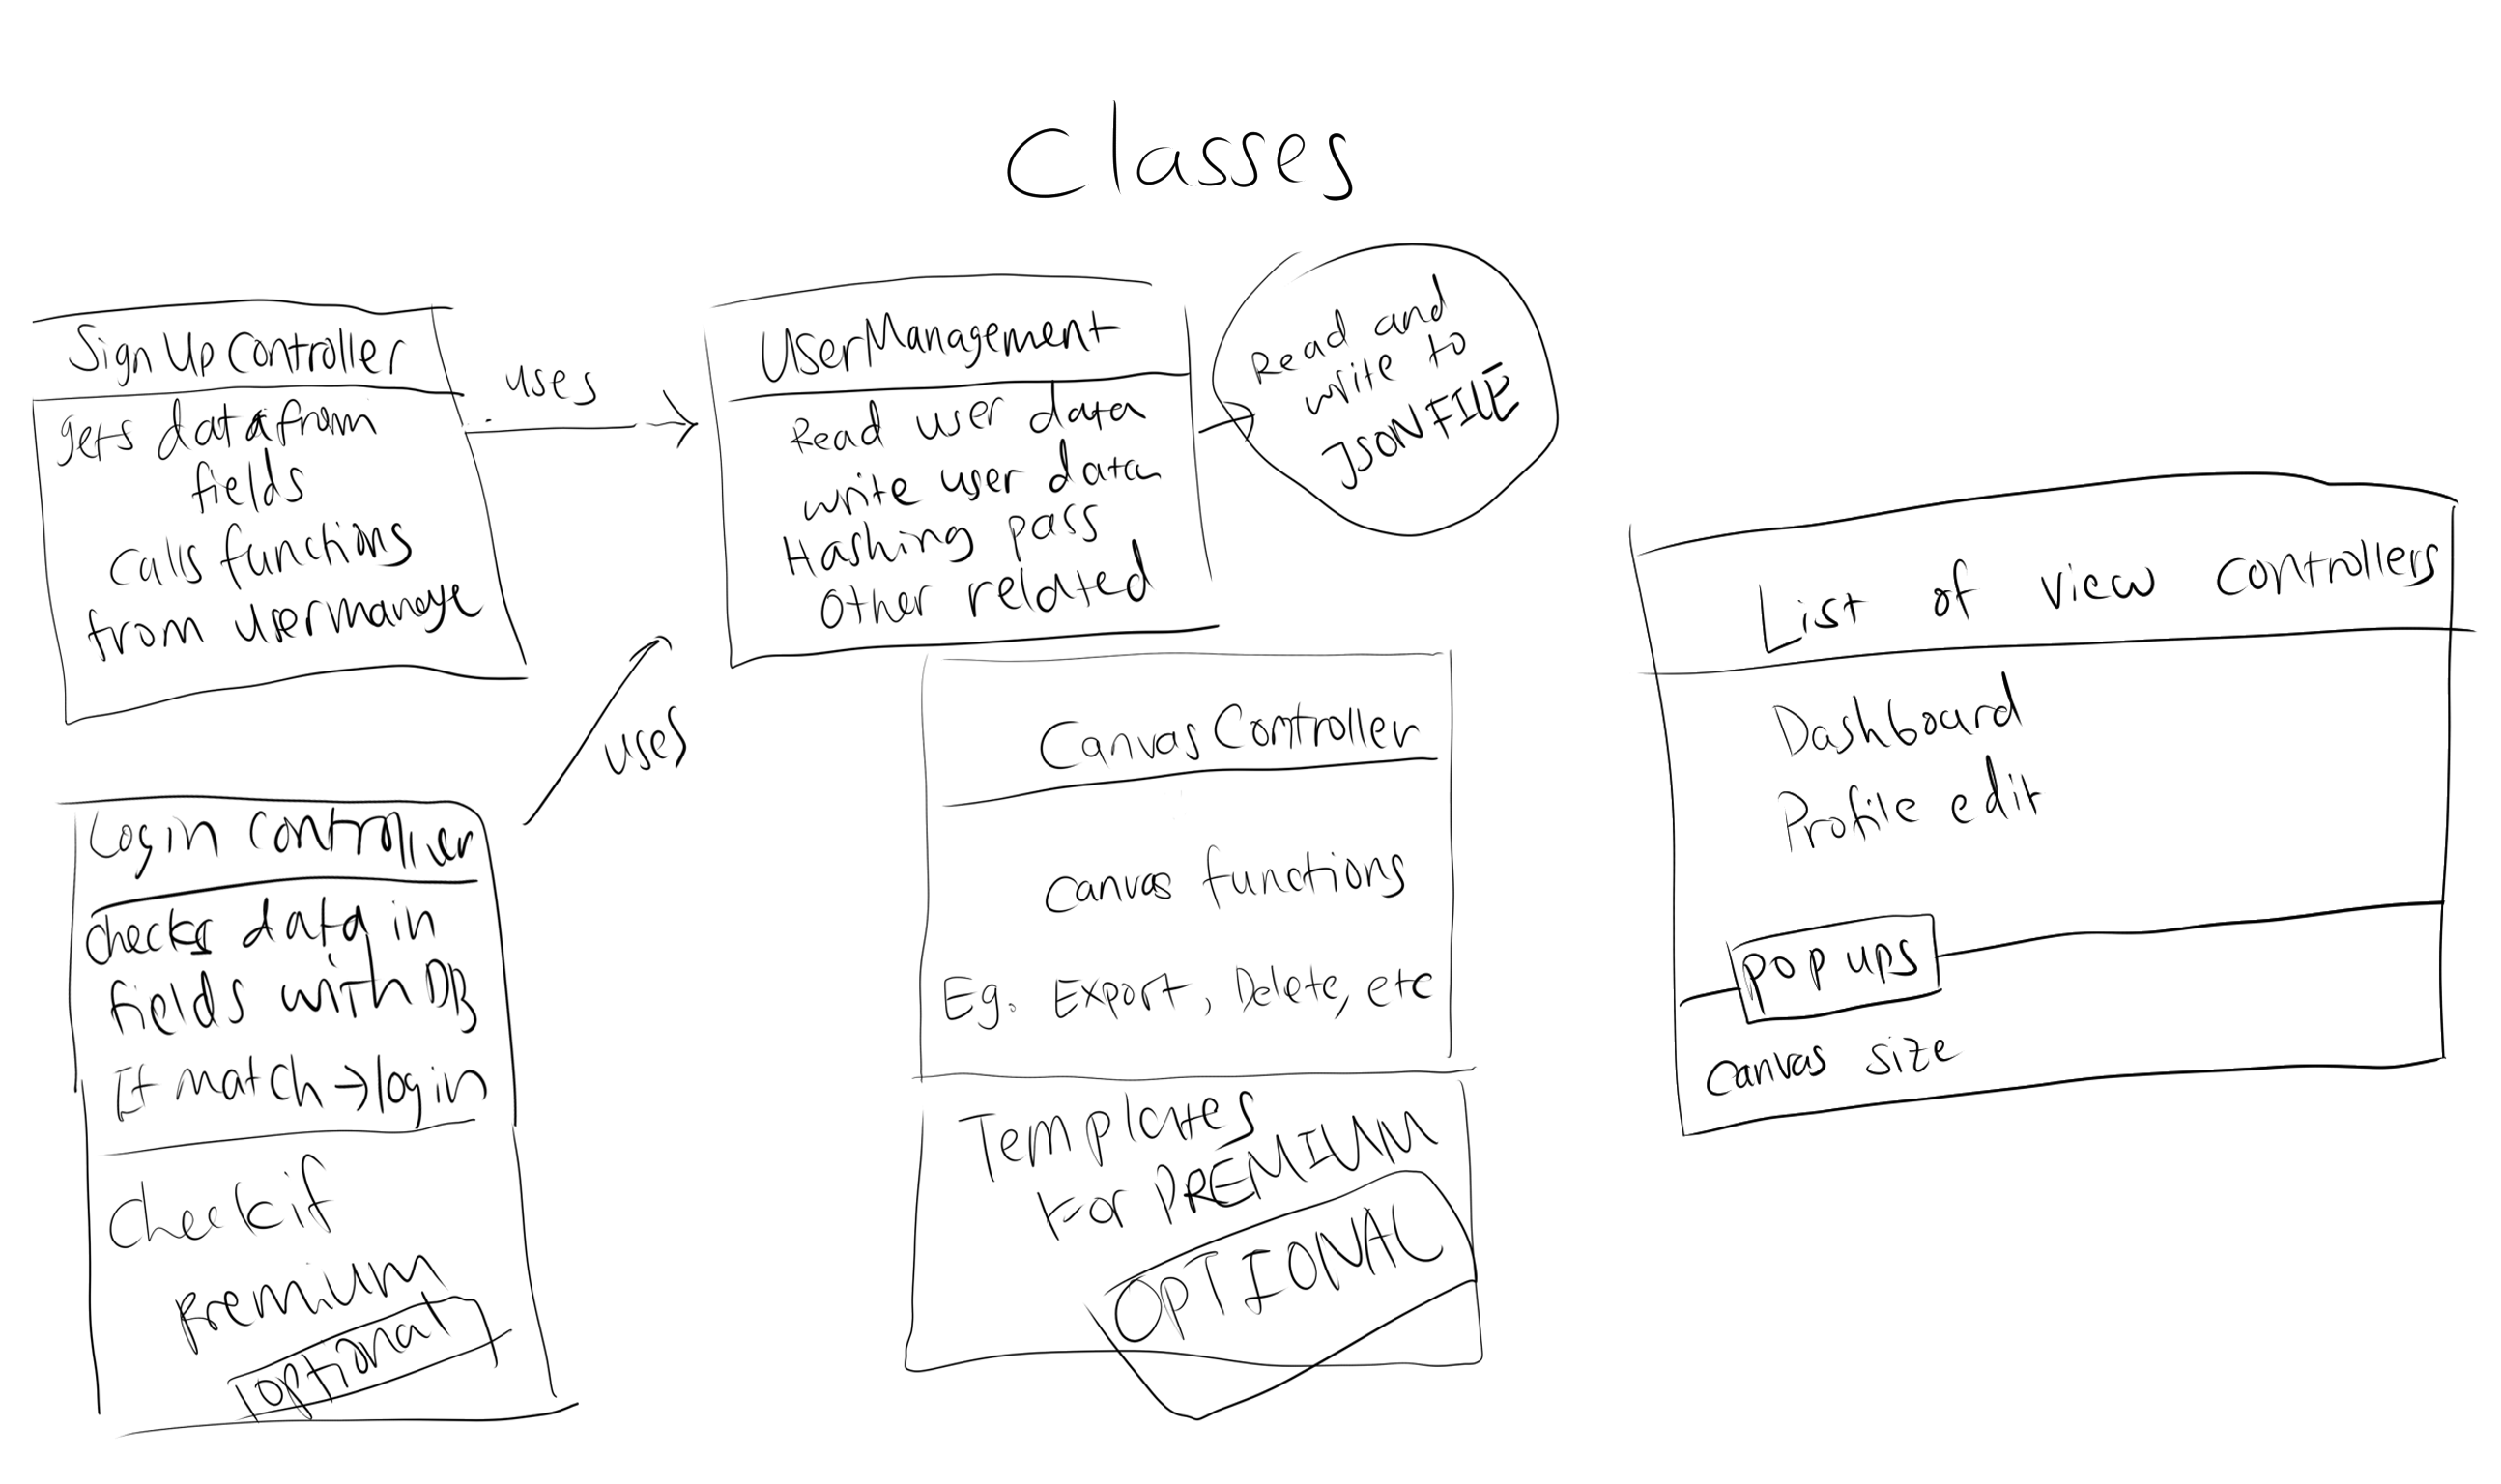 Classes
Sign Up Controller
gets data from
fields
Calls functions
from usermanage
uses
UserManagement
Read user data
write user data
Hashing pass
other related
Read and
write to
JSON FILE
uses
Login Controller
checks data in
fields with DB
If match → login
Check if
premium
optional
Canvas Controller
Canvas functions
Eg. Export, Delete, etc
Templates
For PREMIUM
OPTIONAL
List of view controllers
Dashboard
Profile edit
pop ups
Canvas size